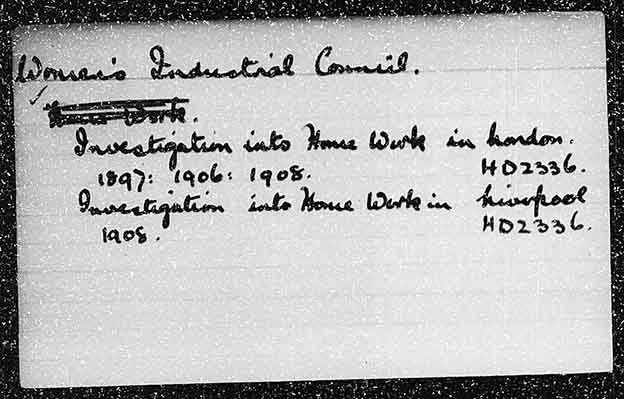 Women's Industrial Council.
Home Work.
Investigation into Home Work in London.
1897: 1906: 1908. HD2336.
Investigation into Home Work in Liverpool
1908. HD2336.